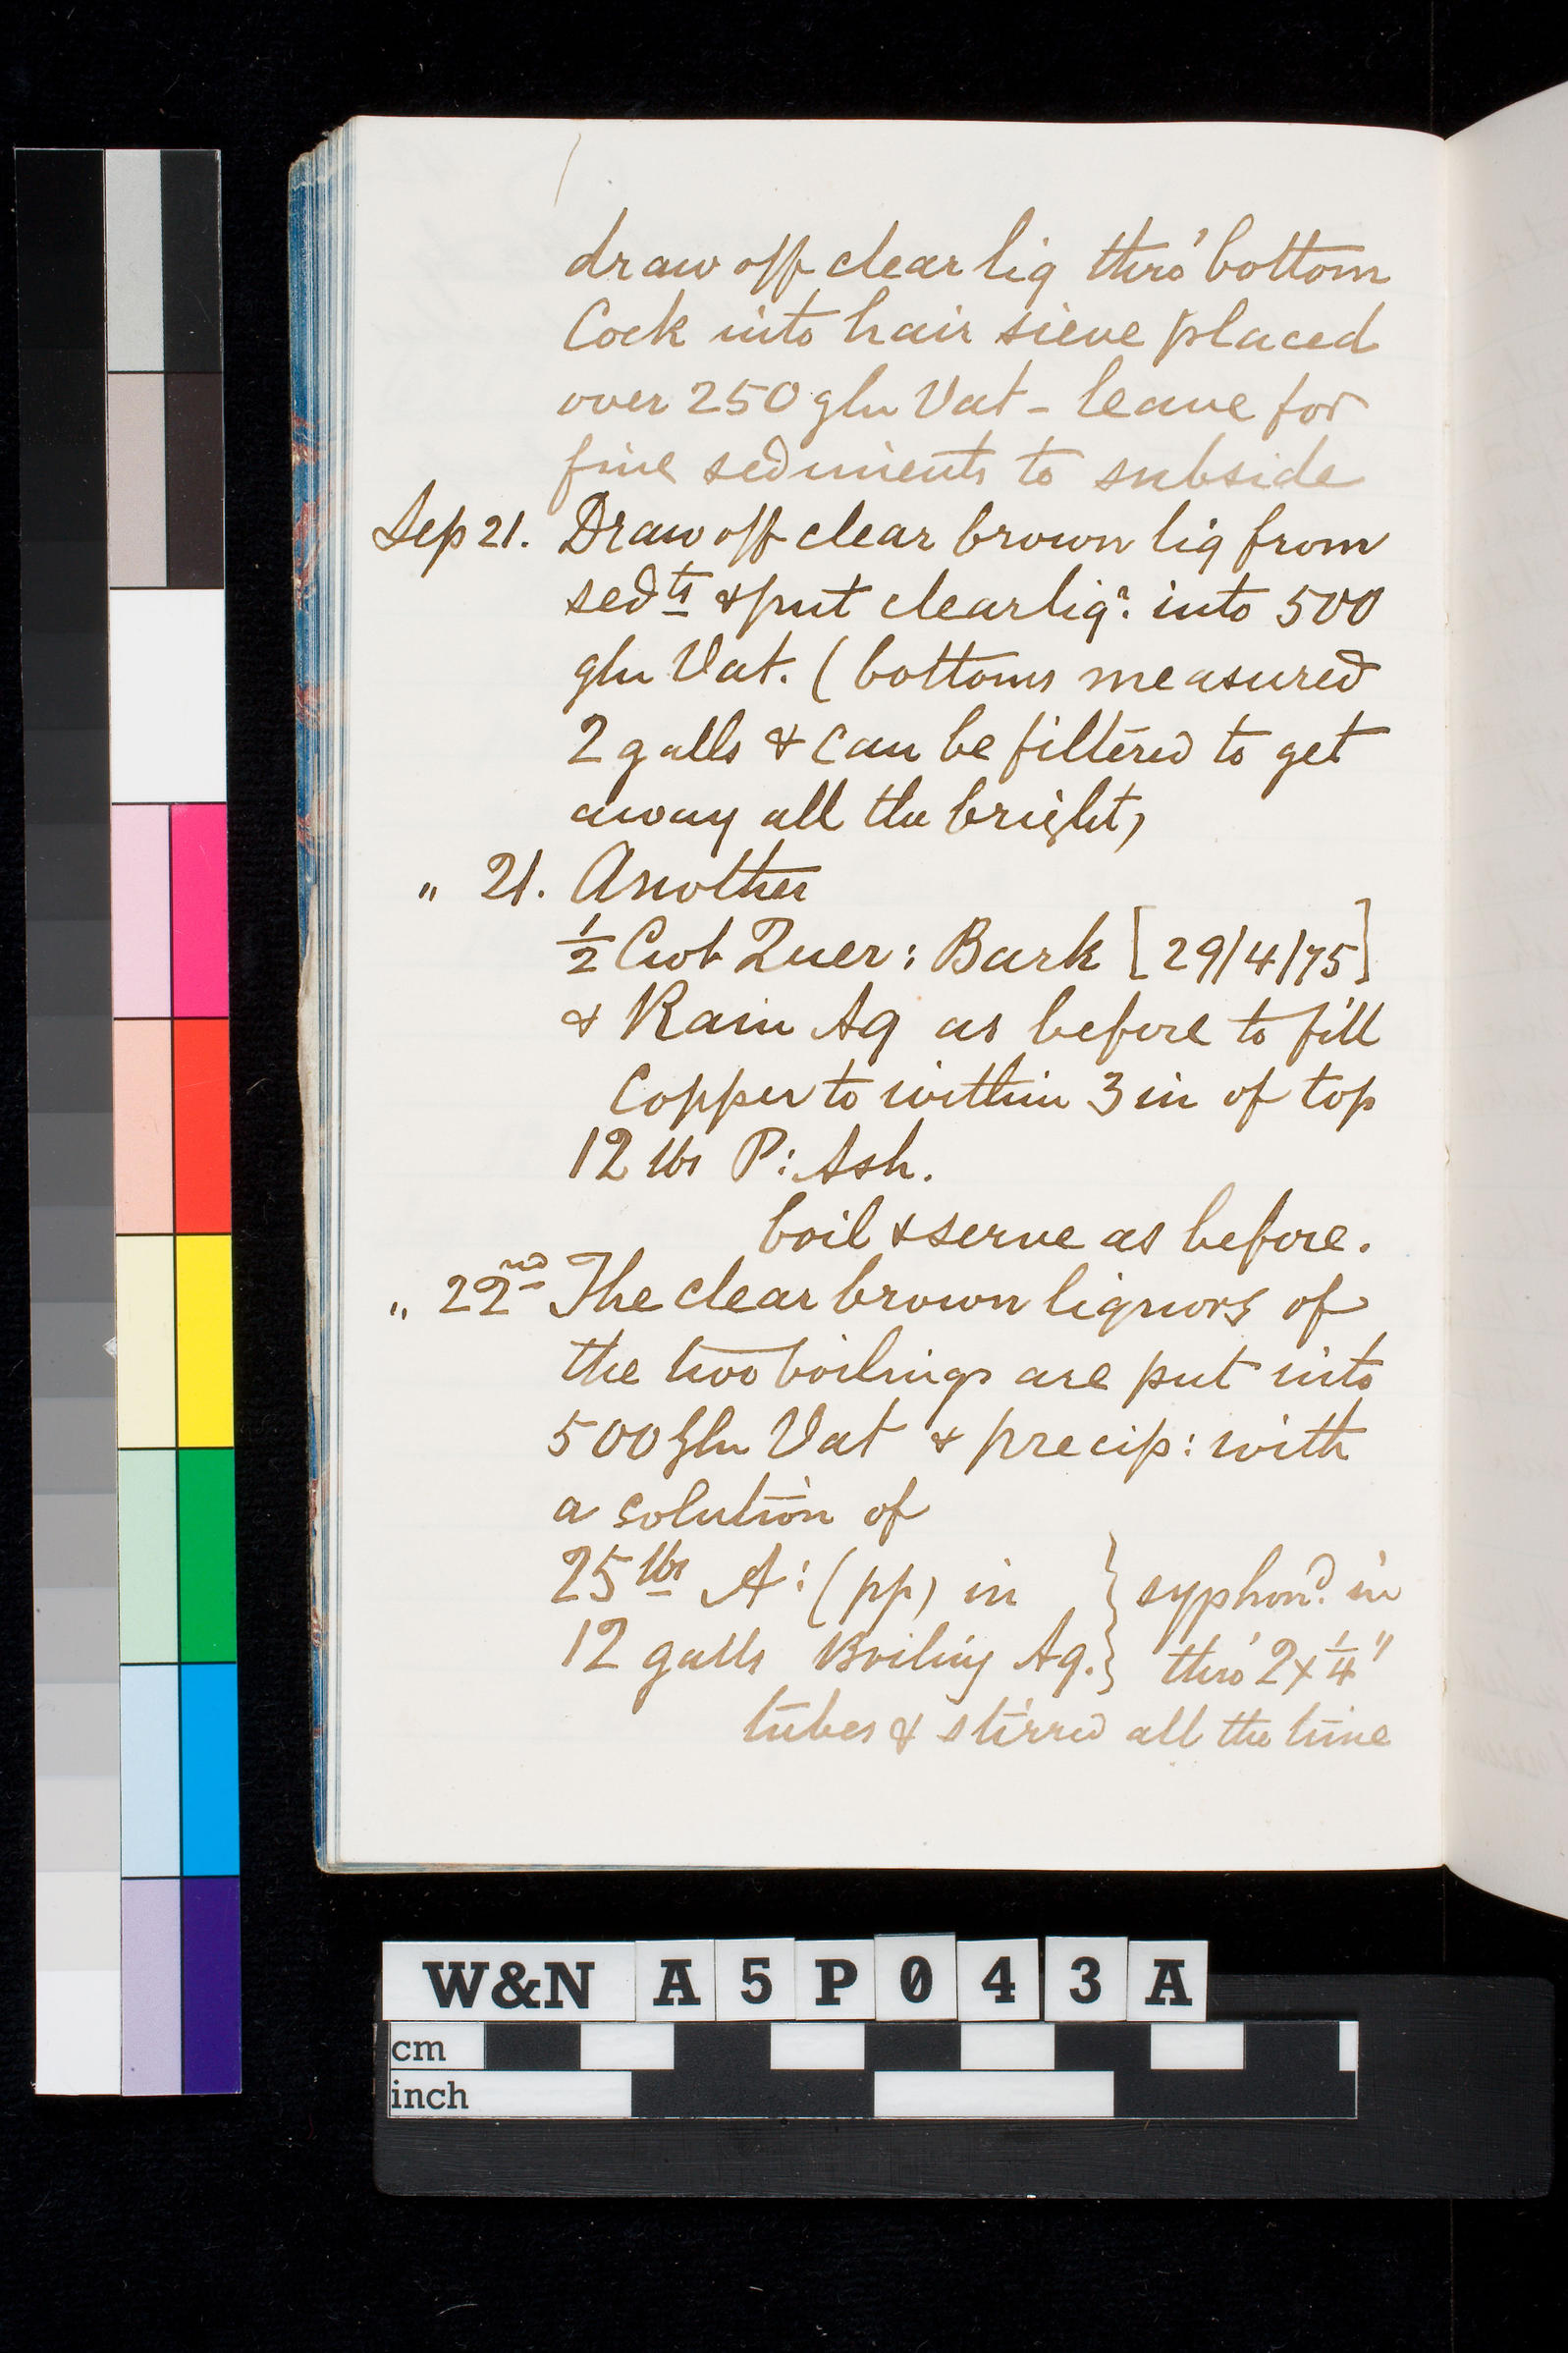 draw off clear liq thro' bottom
Cock into hair sieve placed
over 250 gln Vat - leave for
fine sediments to subside
Sep 21. Draw off clear brown liq from
sedts & put clear liqr: into 500
gln Vat. (bottoms measured
2 galls & can be filtered to get
away all the bright)
" 21. Another
½ Cwt Quer: Bark [29/4/75]
& Rain Aq as before to fill
Copper to within 3 in of top
12 lbs P: Ash.
boil & serve as before.
" 22nd The clear brown liquors of
the two boilings are put into
500 Gln Vat & precip: with
a solution of
25 lbs A: (pp) in } syphond. in
12 galls Boiling Aq. } thro' 2 x ¼"
tubes & stirred all the time
W&N A5P043A
cm
inch